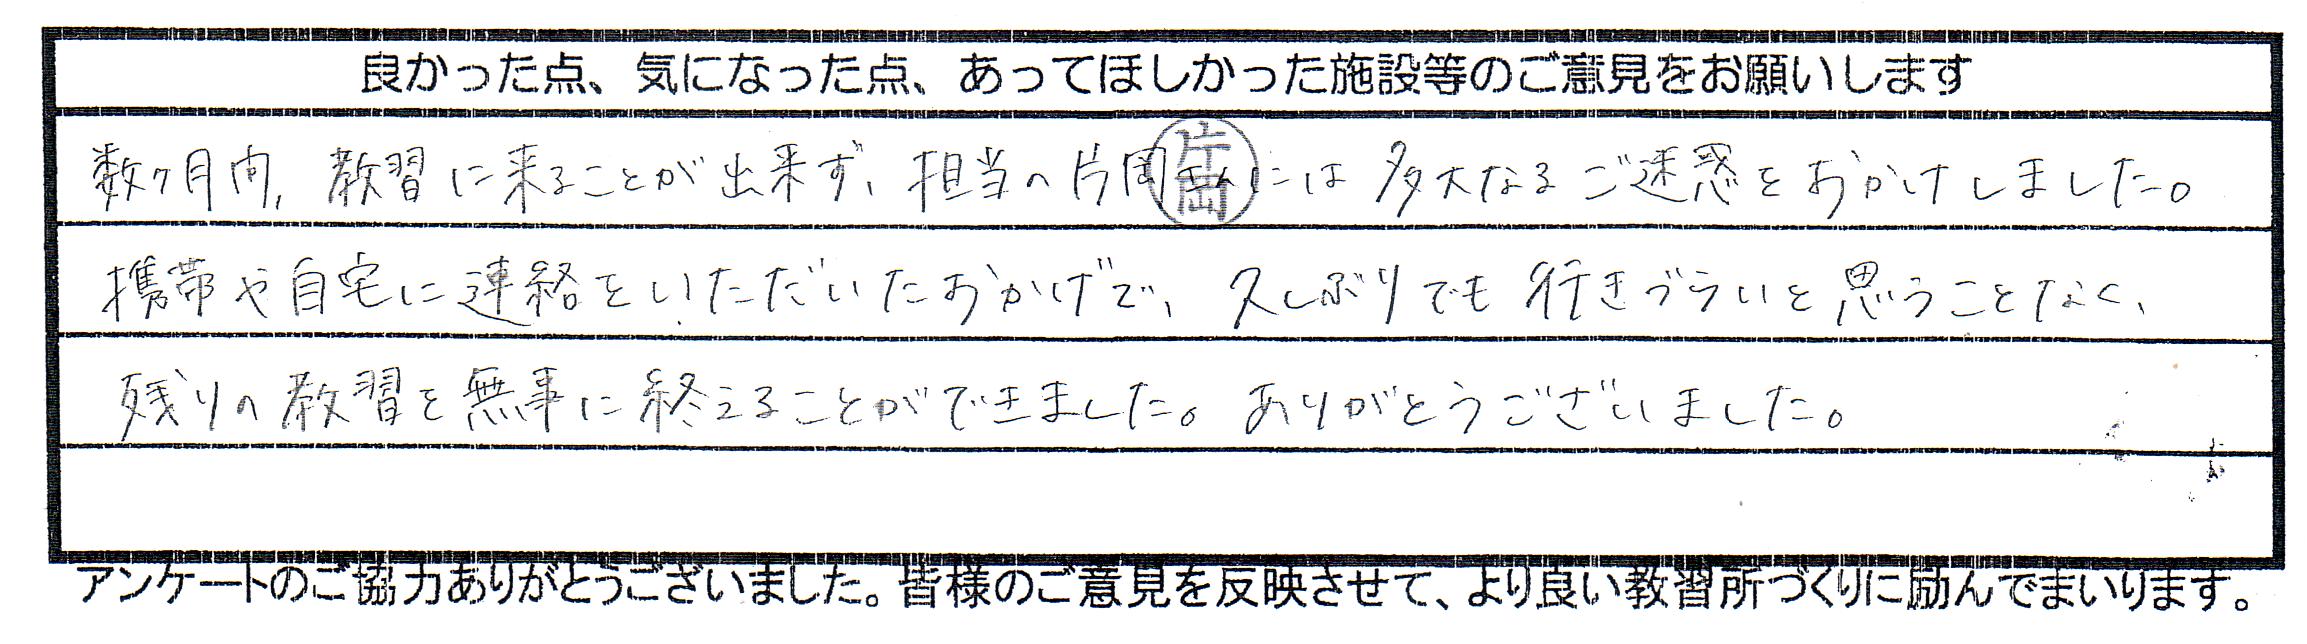 良かった点、気になった点、あってほしかった施設等のご意見をお願いします
数ヶ月間、教習に来ることが出来ず、担当の片岡さんには多大なるご迷惑をおかけしました。
片岡
携帯や自宅に連絡をいただいたおかげで、久しぶりでも行きづらいと思うことなく、
残りの教習を無事に終えることができました。ありがとうございました。
アンケートのご協力ありがとうございました。皆様のご意見を反映させて、より良い教習所づくりに励んでまいります。